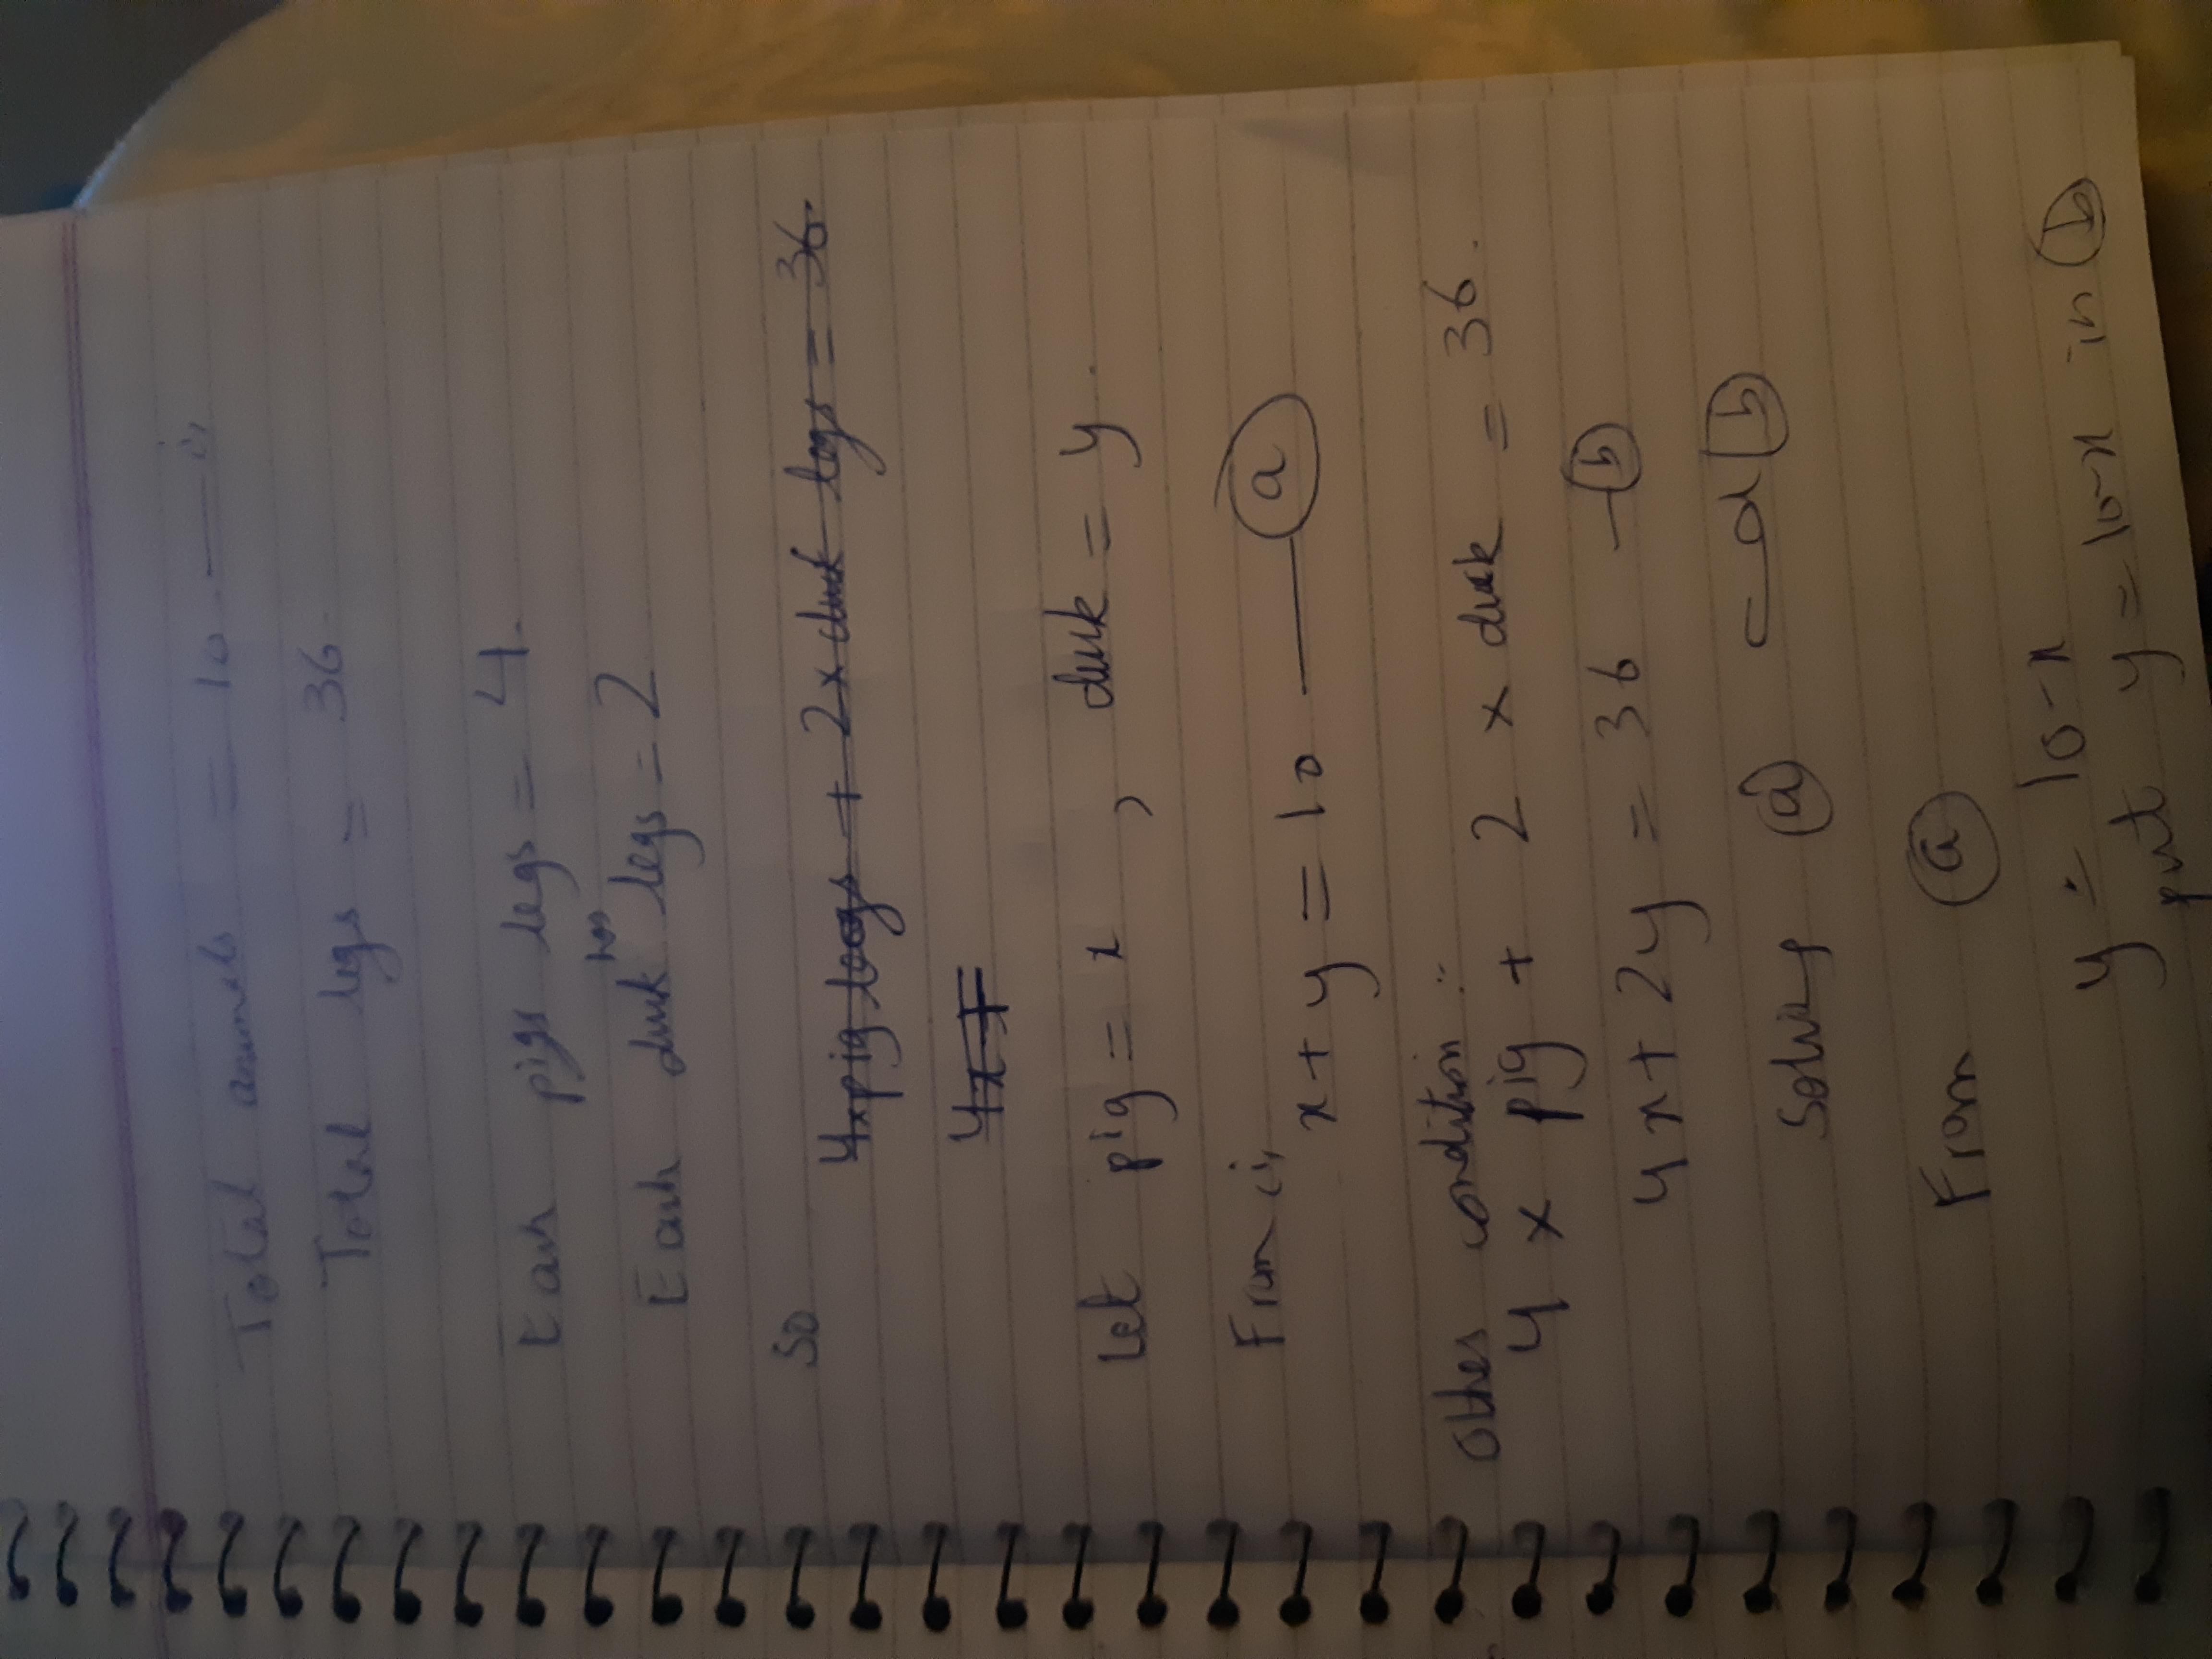 Total animals = 10 — i,
Total legs = 36.
Each pigs legs = 4.
has
Each duck legs = 2
So
4xpig legs + 2xduck legs = 36.
4x+
Let pig = x , duck = y.
From i,
x + y = 10 — a
Other condition :-
4 x pig + 2 x duck = 36.
4x + 2y = 36 — b
Solving a b
From a
y = 10-x
put y = 10-x in b